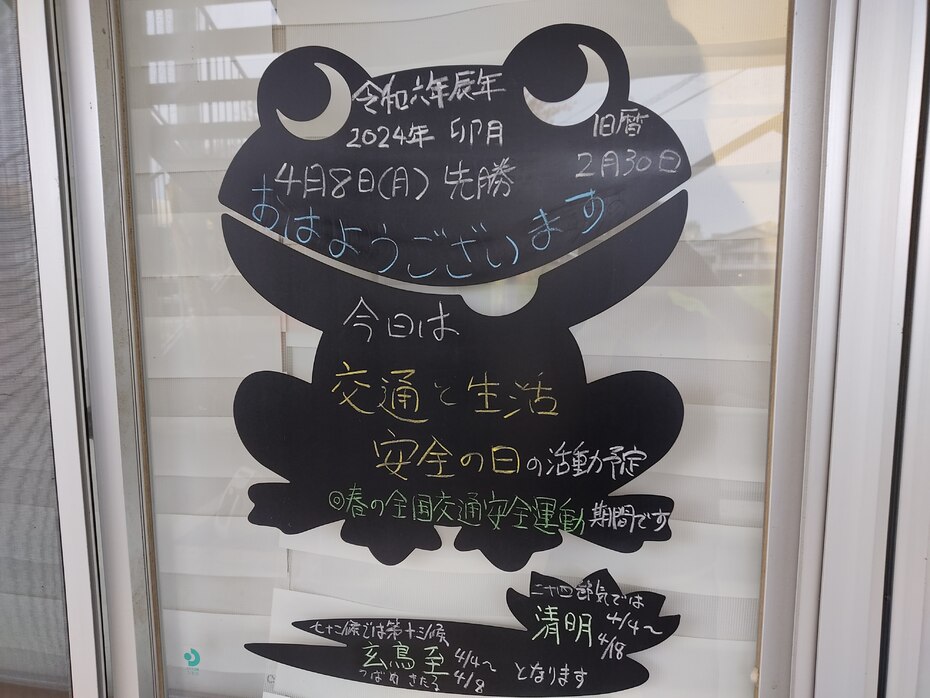 令和六年辰年
2024年 卯月
旧暦
2月30日
4月8日(月) 先勝
おはようございます
今日は
交通と生活
安全の日の活動予定
◎春の全国交通安全運動期間です
二十四節気では
清明 4/4～4/18
七十二候では第十三候
玄鳥至 4/4～4/8
つばめきたる
となります